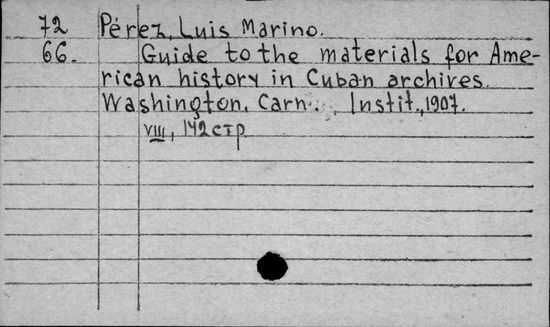 72 Pérez, Luis Marino.
66. Guide to the materials for Ame-
rican history in Cuban archives.
Washington, Carn. Instit., 1907.
VIII, 142 стр